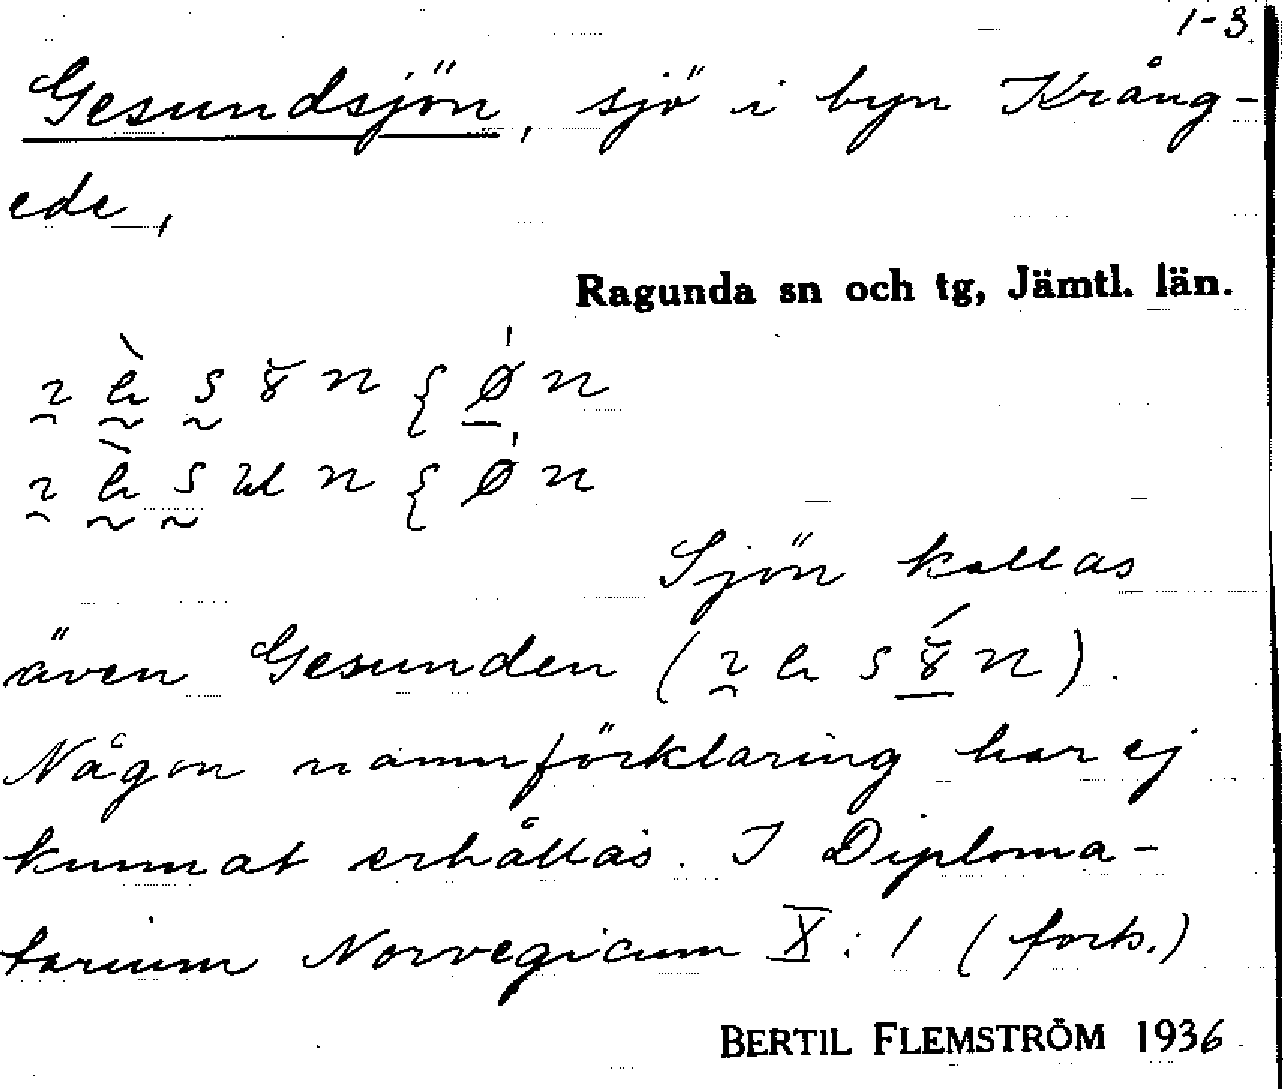 1-3
Gesundsjön, sjö i byn Krång-
ede,
Ragunda sn och tg, Jämtl. län.
Sjön kallas
även Gesunden (
Någon namnförklaring har ej
kunnat erhållas. I Diploma-
tarium Norvegicum X: 1 (forts.)
BERTIL FLEMSTRÖM 1936